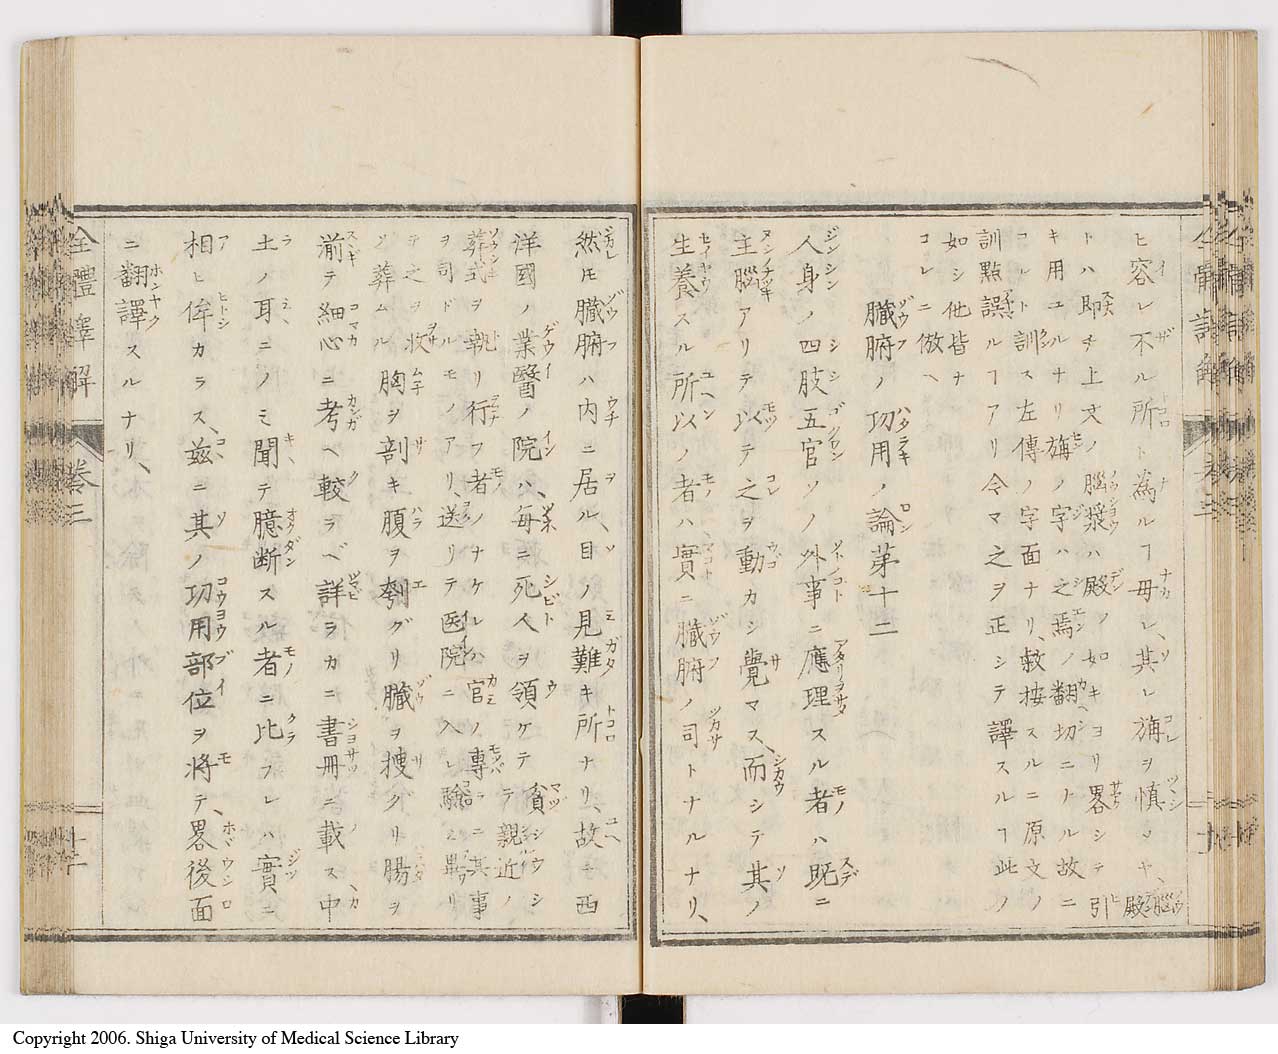 ヒ容レ不ル所ト為ルヿ毋レ、其レ旃ヲ慎メヤ、腦殿
トハ即チ上文ノ腦漿ハ殿ノ如キヨリ畧シテ引
キ用ユルナリ旃ノ字ハ之焉ノ翻切ニナル故ニ
コルト訓ス左傳ノ字面ナリ、敉按スルニ原文ノ
訓點誤ルヿアリ今マ之ヲ正シテ譯スルヿ此ノ
如シ他皆ナ
コレニ倣ヘ
臓腑ノ功用ノ論第十二
人身ノ四肢五官ソノ外事ニ應理スル者ハ既ニ
主腦アリテ以テ之ヲ動カシ覺マス、而シテ其ノ
生養スル所以ノ者ハ實ニ臓腑ノ司トナルナリ、
然𪜈臓腑ハ内ニ居ル、目ノ見難キ所ナリ、故ニ西
洋國ノ業醫ノ院ハ、毎ニ死人ヲ領ケテ
貧シウシテ親近ノ
葬式ヲ執リ行フ者ノナケレハ官ノ專ラニ其事
ヲ司ドルモノアリ、送リテ医院ニ入レ驗ミ畢リ
テ之ヲ收
メ葬ムル
胸ヲ剖キ腹ヲ刳グリ臓ヲ捜クリ腸ヲ
湔テ細心ニ考ヘ較ヲベ詳ラカニ書冊ニ載ス、中
土ノ耳ニノミ聞テ臆断スル者ニ比フレハ實ニ
相ヒ侔カラス、茲ニ其ノ功用部位ヲ将テ、畧後面
ニ翻譯スルナリ、
全體譯解
巻三
十一
Copyright 2006. Shiga University of Medical Science Library